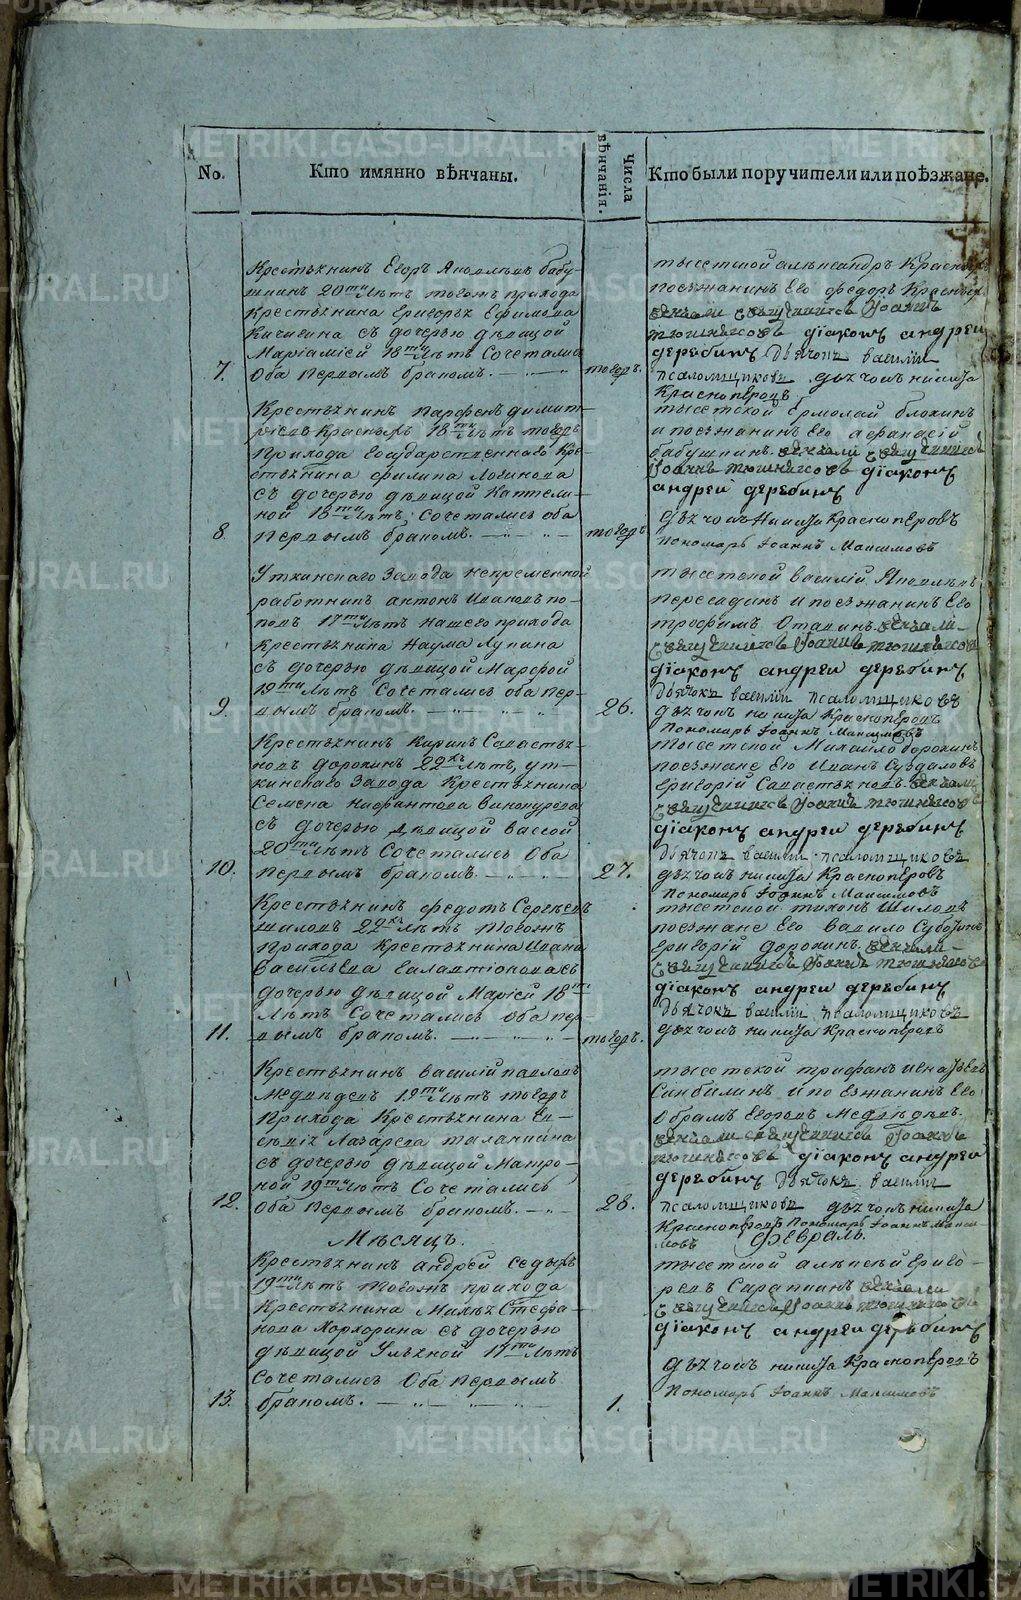 No.
Кто имянно вѣнчаны.
Числа вѣнчанія.
Кто были поручители или поѣзжане.
Крестьянинъ Егоръ Яковлевъ бабу-
шкинъ 20ти лѣтъ тогожъ прихода
Крестьянина Григорья Ефимова
Кичигина съ дочерью дѣвицой
Маріамїей 18ти лѣтъ Сочетались
7. Оба первымъ бракомъ. тогожъ.
тысетской алѣксандръ
поезжанинъ Его федоръ
вѣнчали священникъ Іоаннъ
діаконъ андреи
деребинъ Дьячокъ василіи
псаломщиковъ дьячокъ никита
Красноперовъ
Крестьянинъ Парфенъ димит-
ріевъ 18ти лѣтъ тогожъ
Прихода Государственнаго Кре-
стьянина филипа Логинова
съ дочерью дѣвицой Каттели-
ной 18ти лѣтъ Сочетались оба
8. Первымъ бракомъ. тогожъ
тысетской Ермолай блохинъ
и поезжанинъ Его афанасій
бабушкинъ вѣнчали священникъ
Іоаннъ діаконъ
андрей деребинъ
дьячокъ Никита Красноперовъ
пономарь Іоаннъ Максимовъ
Уткинскаго Завода непременной
работникъ антонъ Ивановъ по-
повъ 17ти лѣтъ нашего прихода
Крестьянина Наума Лупина
съ дочерью дѣвицой Марфой
19ти лѣтъ Сочетались оба пер-
9. вымъ бракомъ. 26.
тысетской василій Яковлевъ
пересадинъ и поезжанинъ Его
трофимъ вѣнчали
священникъ Іоаннъ
діаконъ андреи деребинъ
Дьячокъ василіи псаломщиковъ
дьячокъ никита Красноперовъ
Пономарь Іоаннъ Максимовъ
Крестьянинъ Кирилъ Савастья-
новъ дорохинъ 22хъ лѣтъ, ут-
кинскаго Завода Крестьянина
Семена Нифантова Винокурова
съ дочерью дѣвицой вассой
20ти лѣтъ Сочетались Оба
10. Первымъ бракомъ. 27.
тысетской Михайло дорохинъ
поезжане Его Иванъ Суздаловъ
Григорій Савастьяновъ вѣнчали
священникъ Іоаннъ
діаконъ андреи деребинъ
Дьячокъ василіи псаломщиковъ
дьячокъ никита Красноперовъ
Пономарь Іоаннъ Максимовъ
Крестьянинъ федотъ Сергѣевъ
шиловъ 22хъ лѣтъ тогожъ
Прихода Крестьянина Ивана
Васильева Галактіонова съ
дочерью дѣвицой Марїей 18ти
лѣтъ Сочетались Оба пер-
11. вымъ бракомъ. тогожъ.
тысетской тихонъ Шиловъ
поезжане Его вавило Суботинъ
Григорій дорохинъ. вѣнчали
священникъ Іоаннъ
діаконъ андреи деребинъ
Дьячокъ василіи псаломщиковъ
дьячокъ никита Красноперовъ
Крестьянинъ василій павловъ
Медведевъ 19ти лѣтъ тогожъ
Прихода Крестьянина Ев-
Лазарева
съ дочерью дѣвицой Матро-
ной 19ти лѣтъ Сочетались
12. Оба Первымъ бракомъ. 28.
тысетской трифанъ игнатьевъ
и поезжанинъ Его
Абрамъ Егоровъ Медведевъ.
вѣнчали священникъ Іоаннъ
діаконъ андреи
деребинъ Дьячокъ василіи
псаломщиковъ дьячокъ никита
Красноперовъ Пономарь Іоаннъ Макси-
мовъ
Мѣсяцъ. февраль.
Крестьянинъ андрей седыхъ
19ти лѣтъ тогожъ прихода
Крестьянина Стефа-
нова съ дочерью
дѣвицой Ульяной 17ти лѣтъ
Сочетались Оба Первымъ
13. бракомъ. 1.
тысетской алѣксѣй Григо-
рьевъ вѣнчали
священникъ Іоаннъ
діаконъ андреи деребинъ
дьячокъ никита Красноперовъ
Пономарь Іоаннъ Максимовъ
METRIKI.GASO-URAL.RU